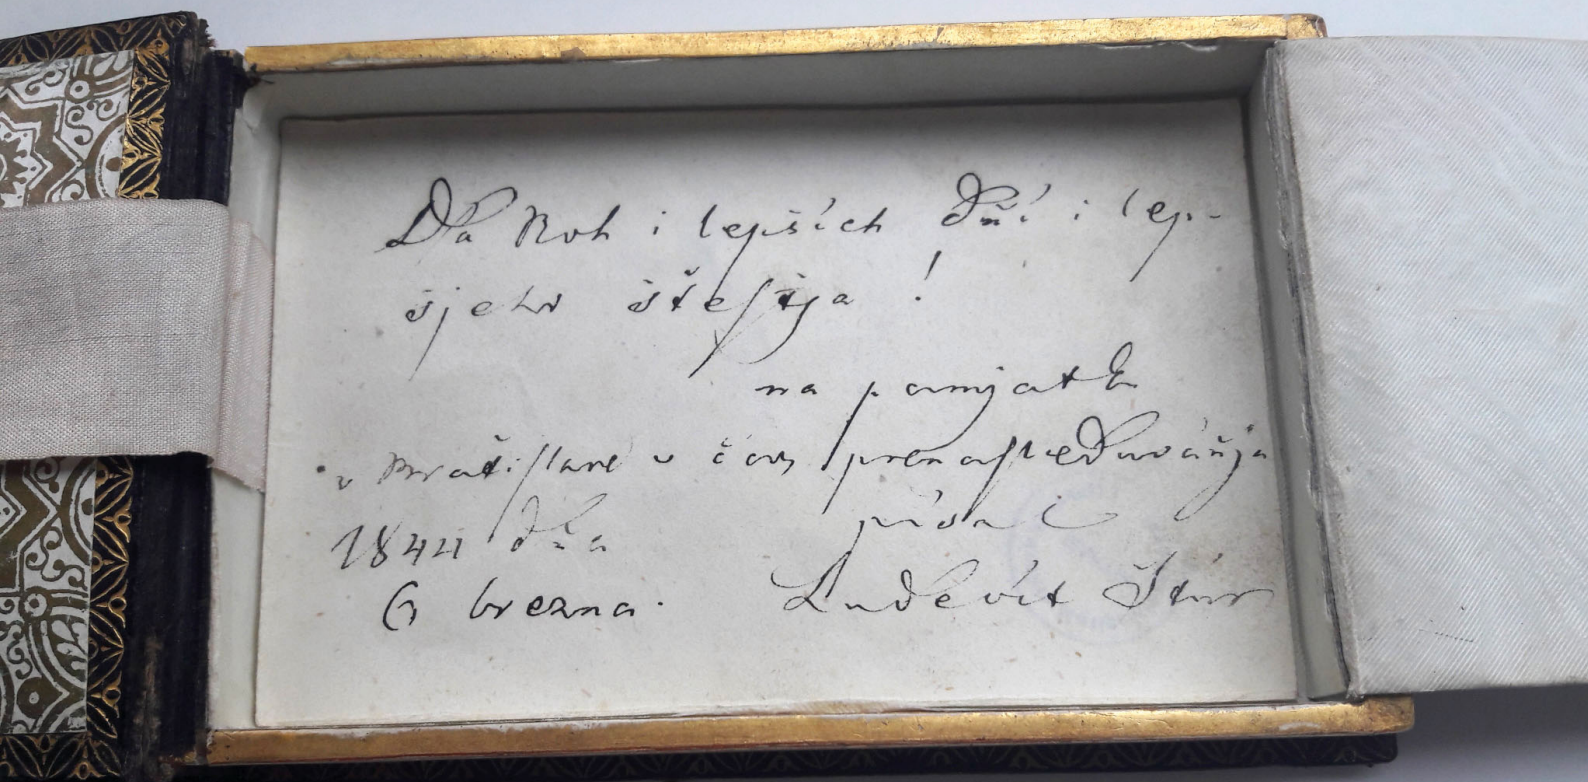 Dá Boh i lepších dňí i lep-
šjeho šťesťja!
na pamjatku
v Braťislave v čas prenasleduváňja
1844 dňa písal
6 brezna. Ludevít Štúr